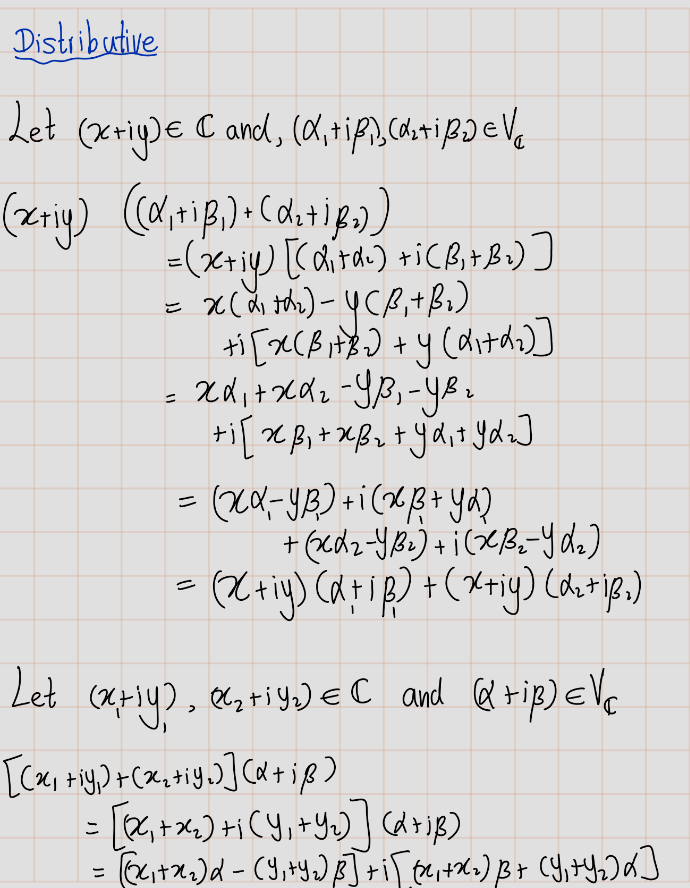 Distributive
Let (x+iy) ∈ ℂ and, (α₁+iβ₁),(α₂+iβ₂) ∈ V_ℂ
(x+iy) ((α₁+iβ₁)+(α₂+iβ₂))
=(x+iy)[(α₁+α₂) +i(β₁+β₂)]
= x(α₁+α₂)-y(β₁+β₂)
+i[x(β₁+β₂) + y(α₁+α₂)]
= xα₁+xα₂-yβ₁-yβ₂
+i[xβ₁+xβ₂+yα₁+yα₂]
= (xα₁-yβ₁)+i(xβ₁+yα₁)
+(xα₂-yβ₂)+i(xβ₂-yα₂)
= (x+iy)(α₁+iβ₁)+(x+iy)(α₂+iβ₂)
Let (x₁+iy₁), (x₂+iy₂) ∈ ℂ and (α+iβ) ∈ V_ℂ
[(x₁+iy₁)+(x₂+iy₂)](α+iβ)
= [(x₁+x₂)+i(y₁+y₂)](α+iβ)
= [(x₁+x₂)α-(y₁+y₂)β]+i[(x₁+x₂)β+(y₁+y₂)α]